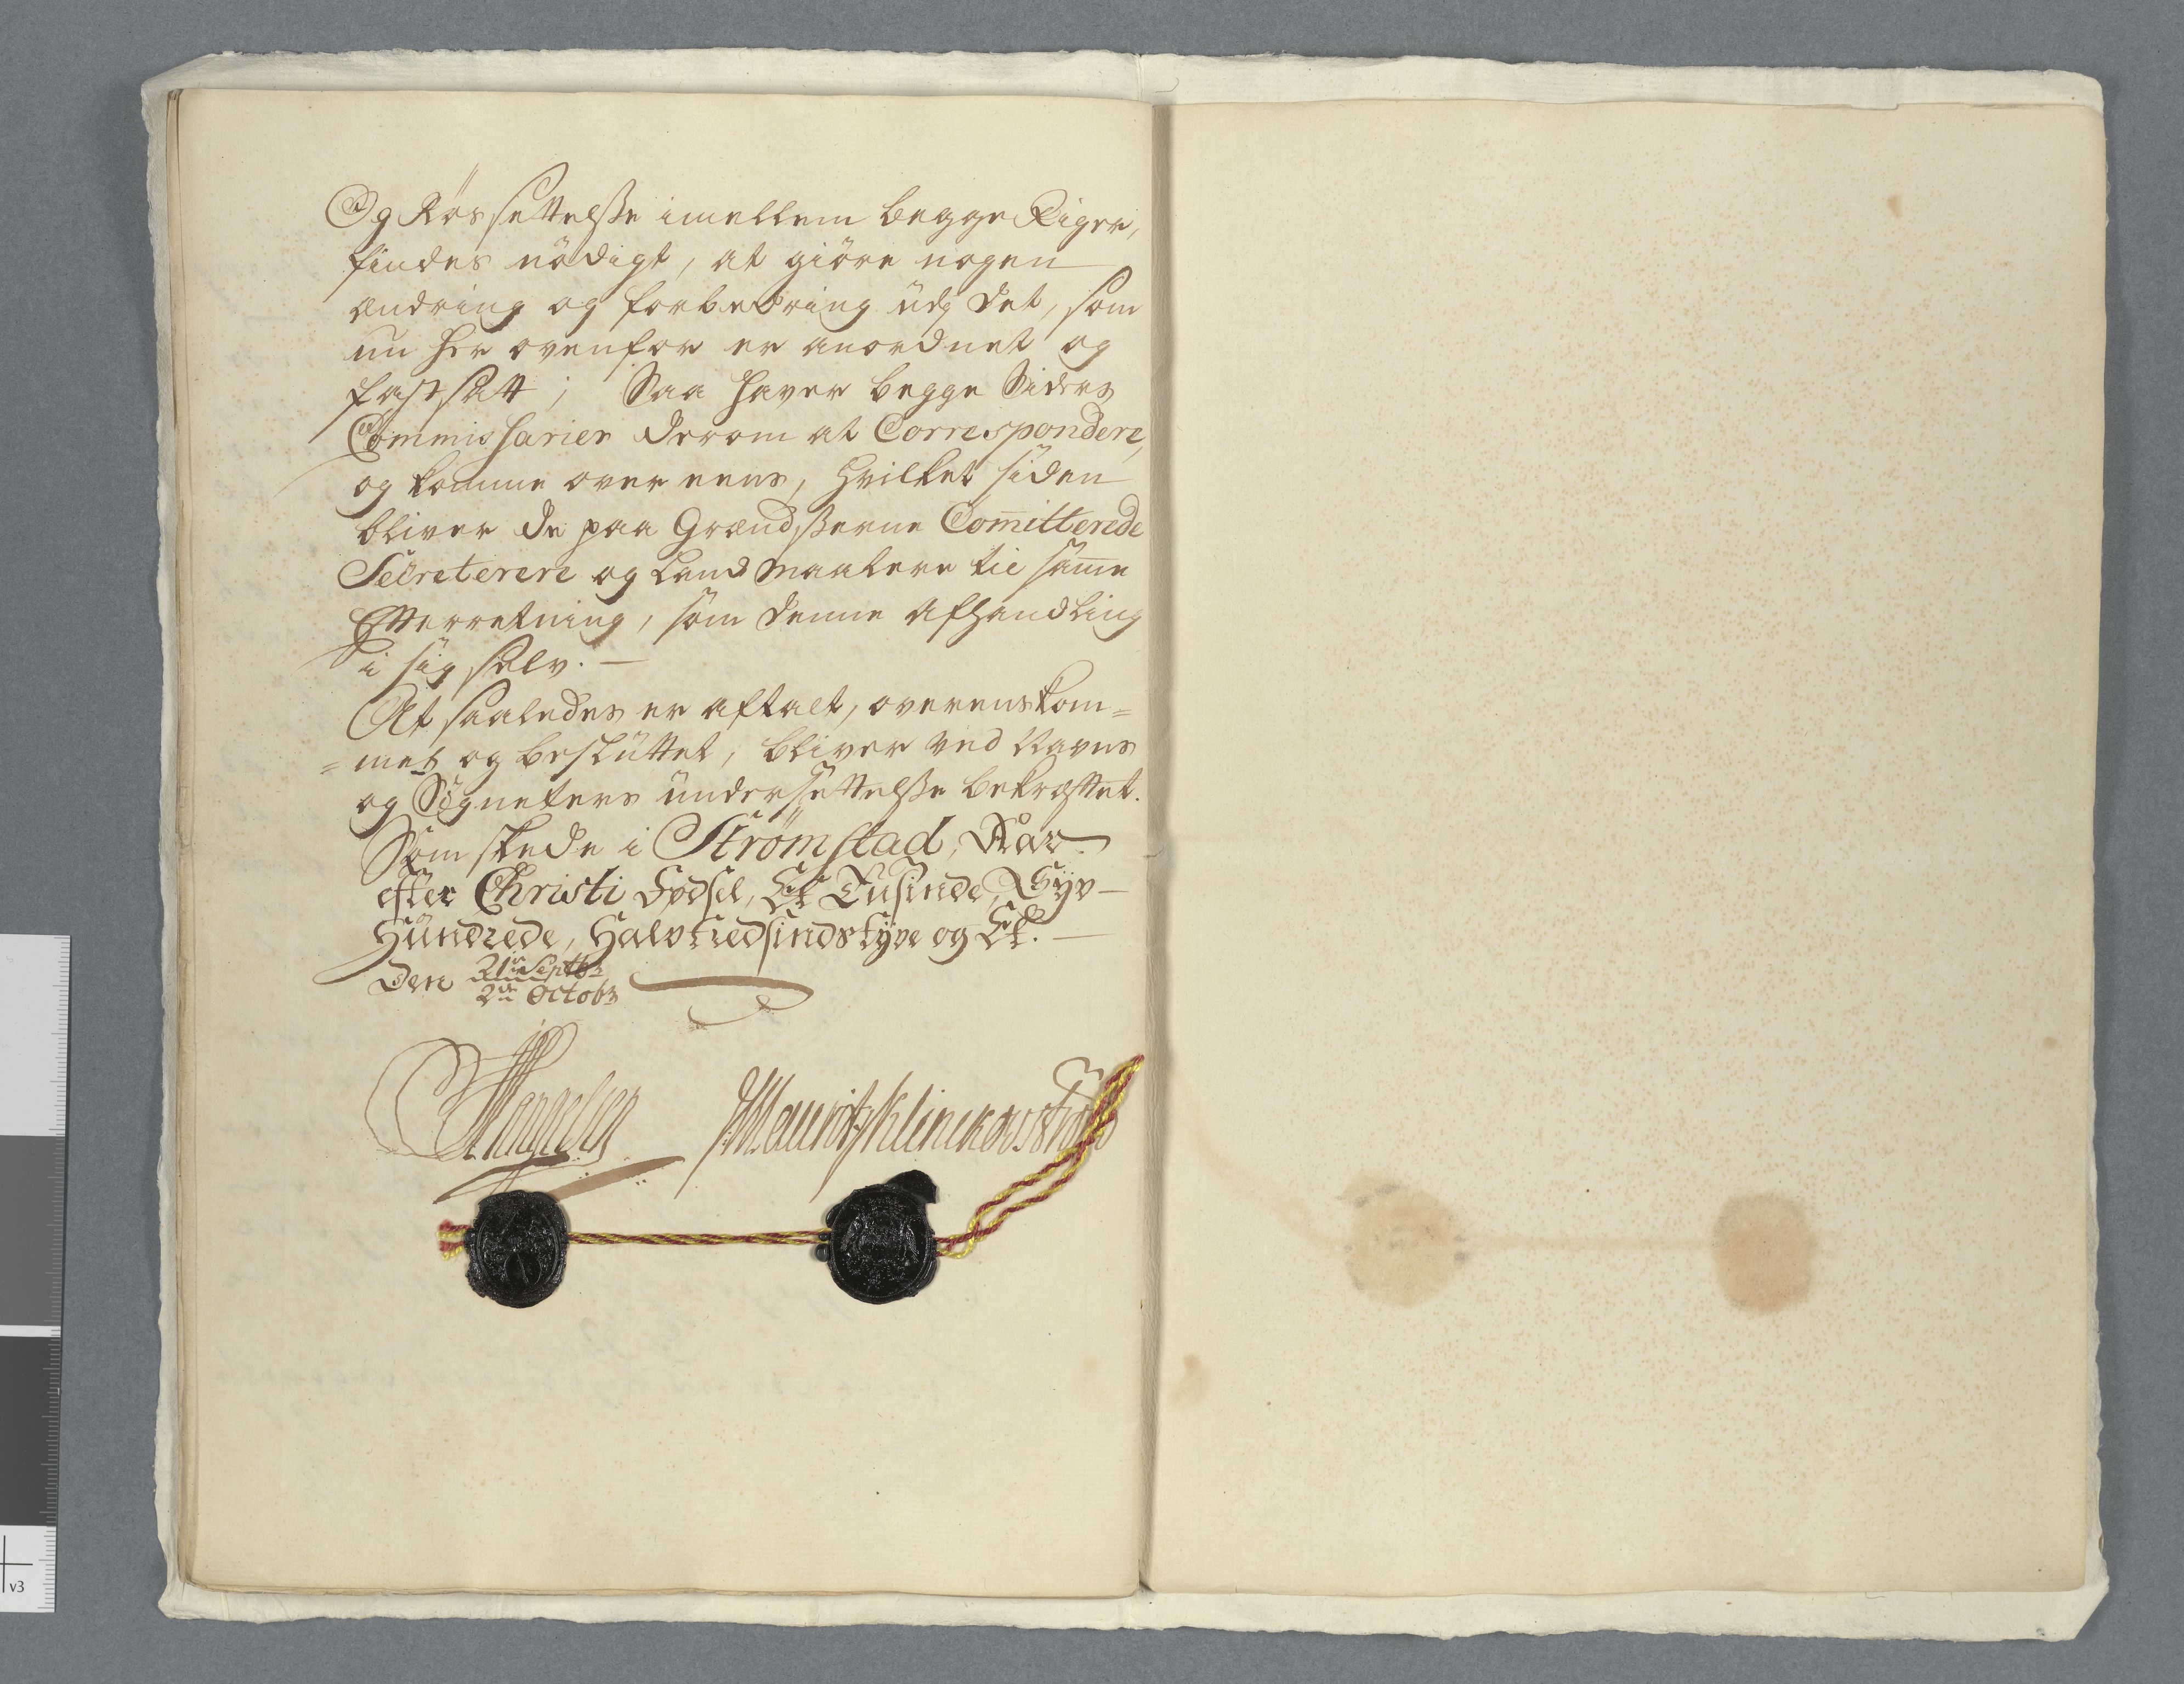 Og Rös settelsse imellem begge Riger,
findes nödigt, at giöre nogen
ændring og forbedring udj det, som
nu her ovenfor er anordnet og
fastsatt; Saa haver begge Siders
Commissarier derom at Correspondere,
og komme over eens, hvilket siden
bliver de paa Grændsserne Com̄itterede
Secreterere og Land Maalere til sam̄e
Efterretning, som denne Afhandling
i sig selv. —
At saaledes er aftalt, overenskom=
=met og besluttet, bliver ved Navns
og Signeters undersettelsse bekræftet.
Som skede i Strömstad, Aar
efter Christi Födsel, Et Tusinde, Syv—
Hundrede, Halvtredsindstyve og Et. —
Den 21de Septbr
2den Octobr
Mauritz Klinckowström
v3